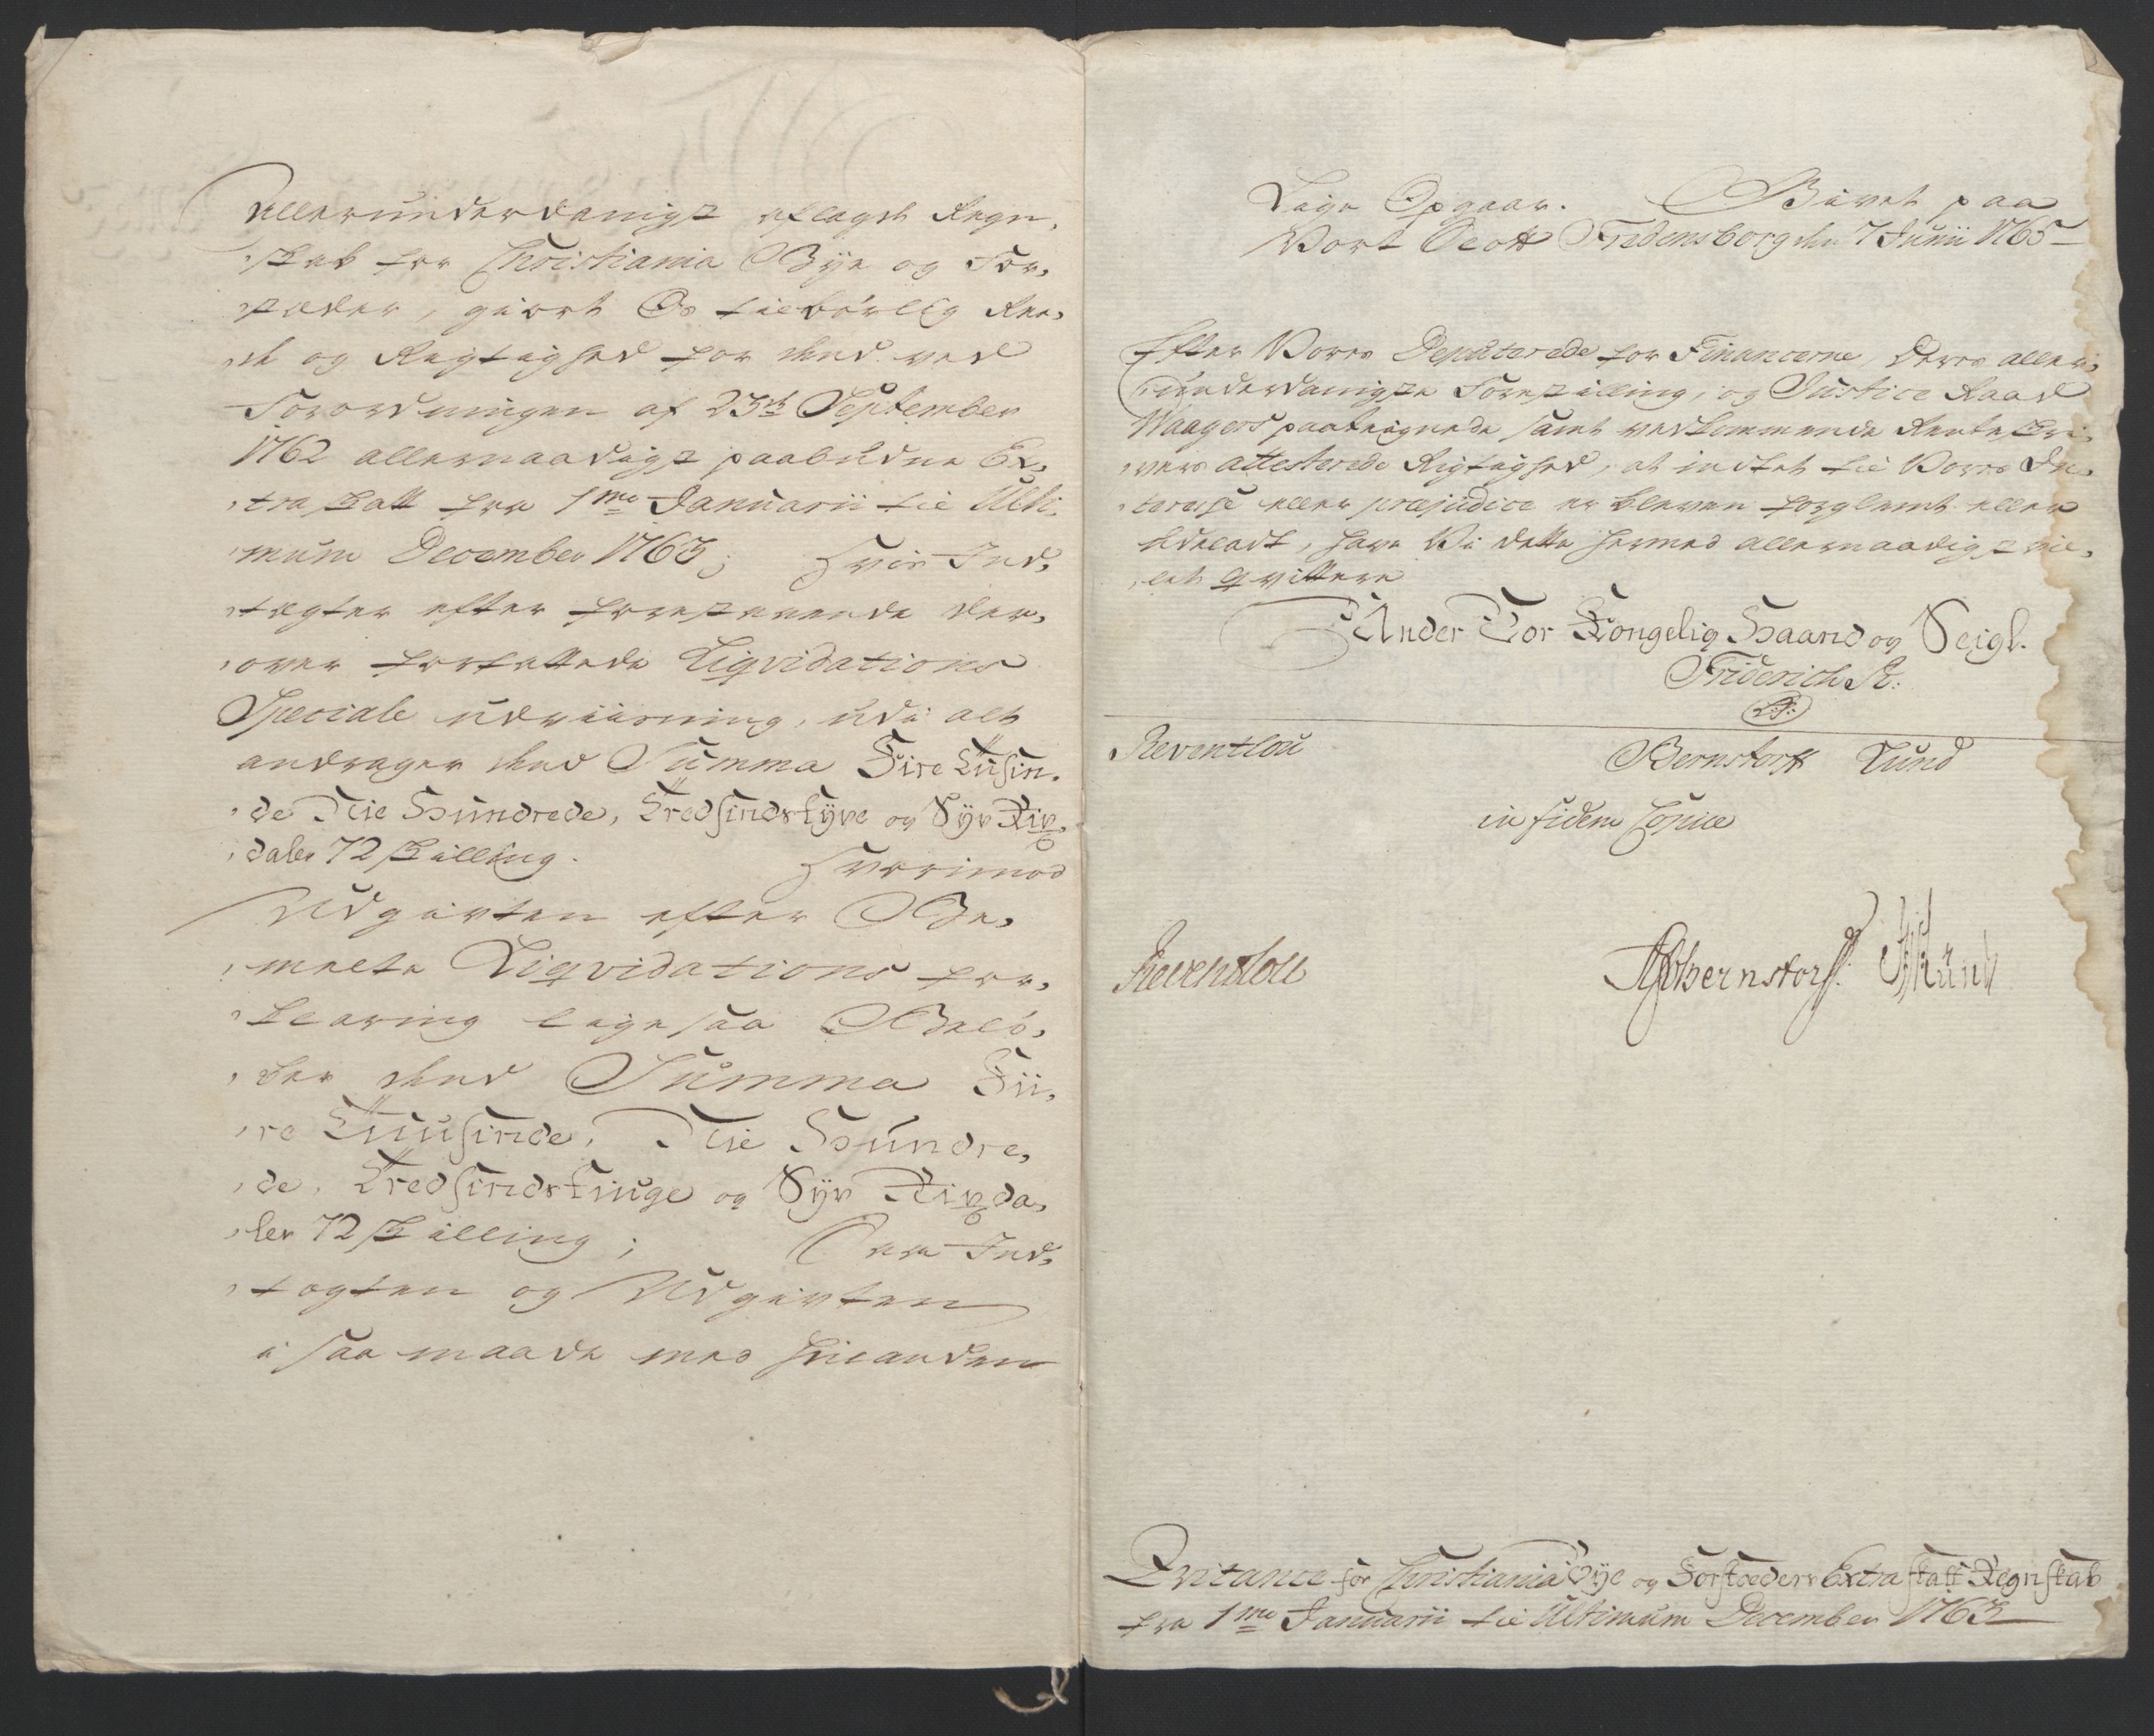 allerunderdanigst aflagde Regn-
skab for Christiania Bye og For-
stæder, giort Os tilbørlig Ree-
de og Rigtighed for den ved
Forordningen af 23de September
1762 allernaadigst paabudne Ex-
tra Skatt fra 1me Januarii til Ulti-
mum December 1763; Hvis Ind-
tægter efter forestaaende der-
over forfattede Liqvidations
Speciale udviisning, udi alt
andrager den Summa Fire Tusin-
de Nie Hundrede, Tredsindstyve og Syv Rix-
daler 72 Skilling. Hvorimod
Udgivten efter Be-
meelte Liqvidations for-
klaring ligesaa Beløb-
er den Summa Fii-
re Tuusinde, Nie Hundre-
de, Tredsindstiuge og Syv Rixda-
ler 72 Skilling; Saa Ind-
tægten og Udgivten
i saa maade med hinanden
Lige Opgaar. Givet paa
Vort Slott Fridensborg den 7 Junii 1765
Efter Vores Deputerede for Financerne, deres aller-
underdanigste Forestilling, og Justice Raad
Waagers paategnede samt vedkommende Renteskri-
vers attesterede Rigtighed, at intet til Vores In-
teresse eller præjudice er bleven forglemt eller
udeladt, have Vi dette hermed allernaadigst vil-
let qvittere
Under Vor Kongelig Haand og Seigl.
Friderich R:
L:S:
Reventlou Bernstorff Lund
in fidem Copiæ
Reventlou Bernstorff. Lund
Qvitance for Christiania Bye og Forstæders Extra Skatt Regnskab
fra 1me Januarii til Ultimum December 1763